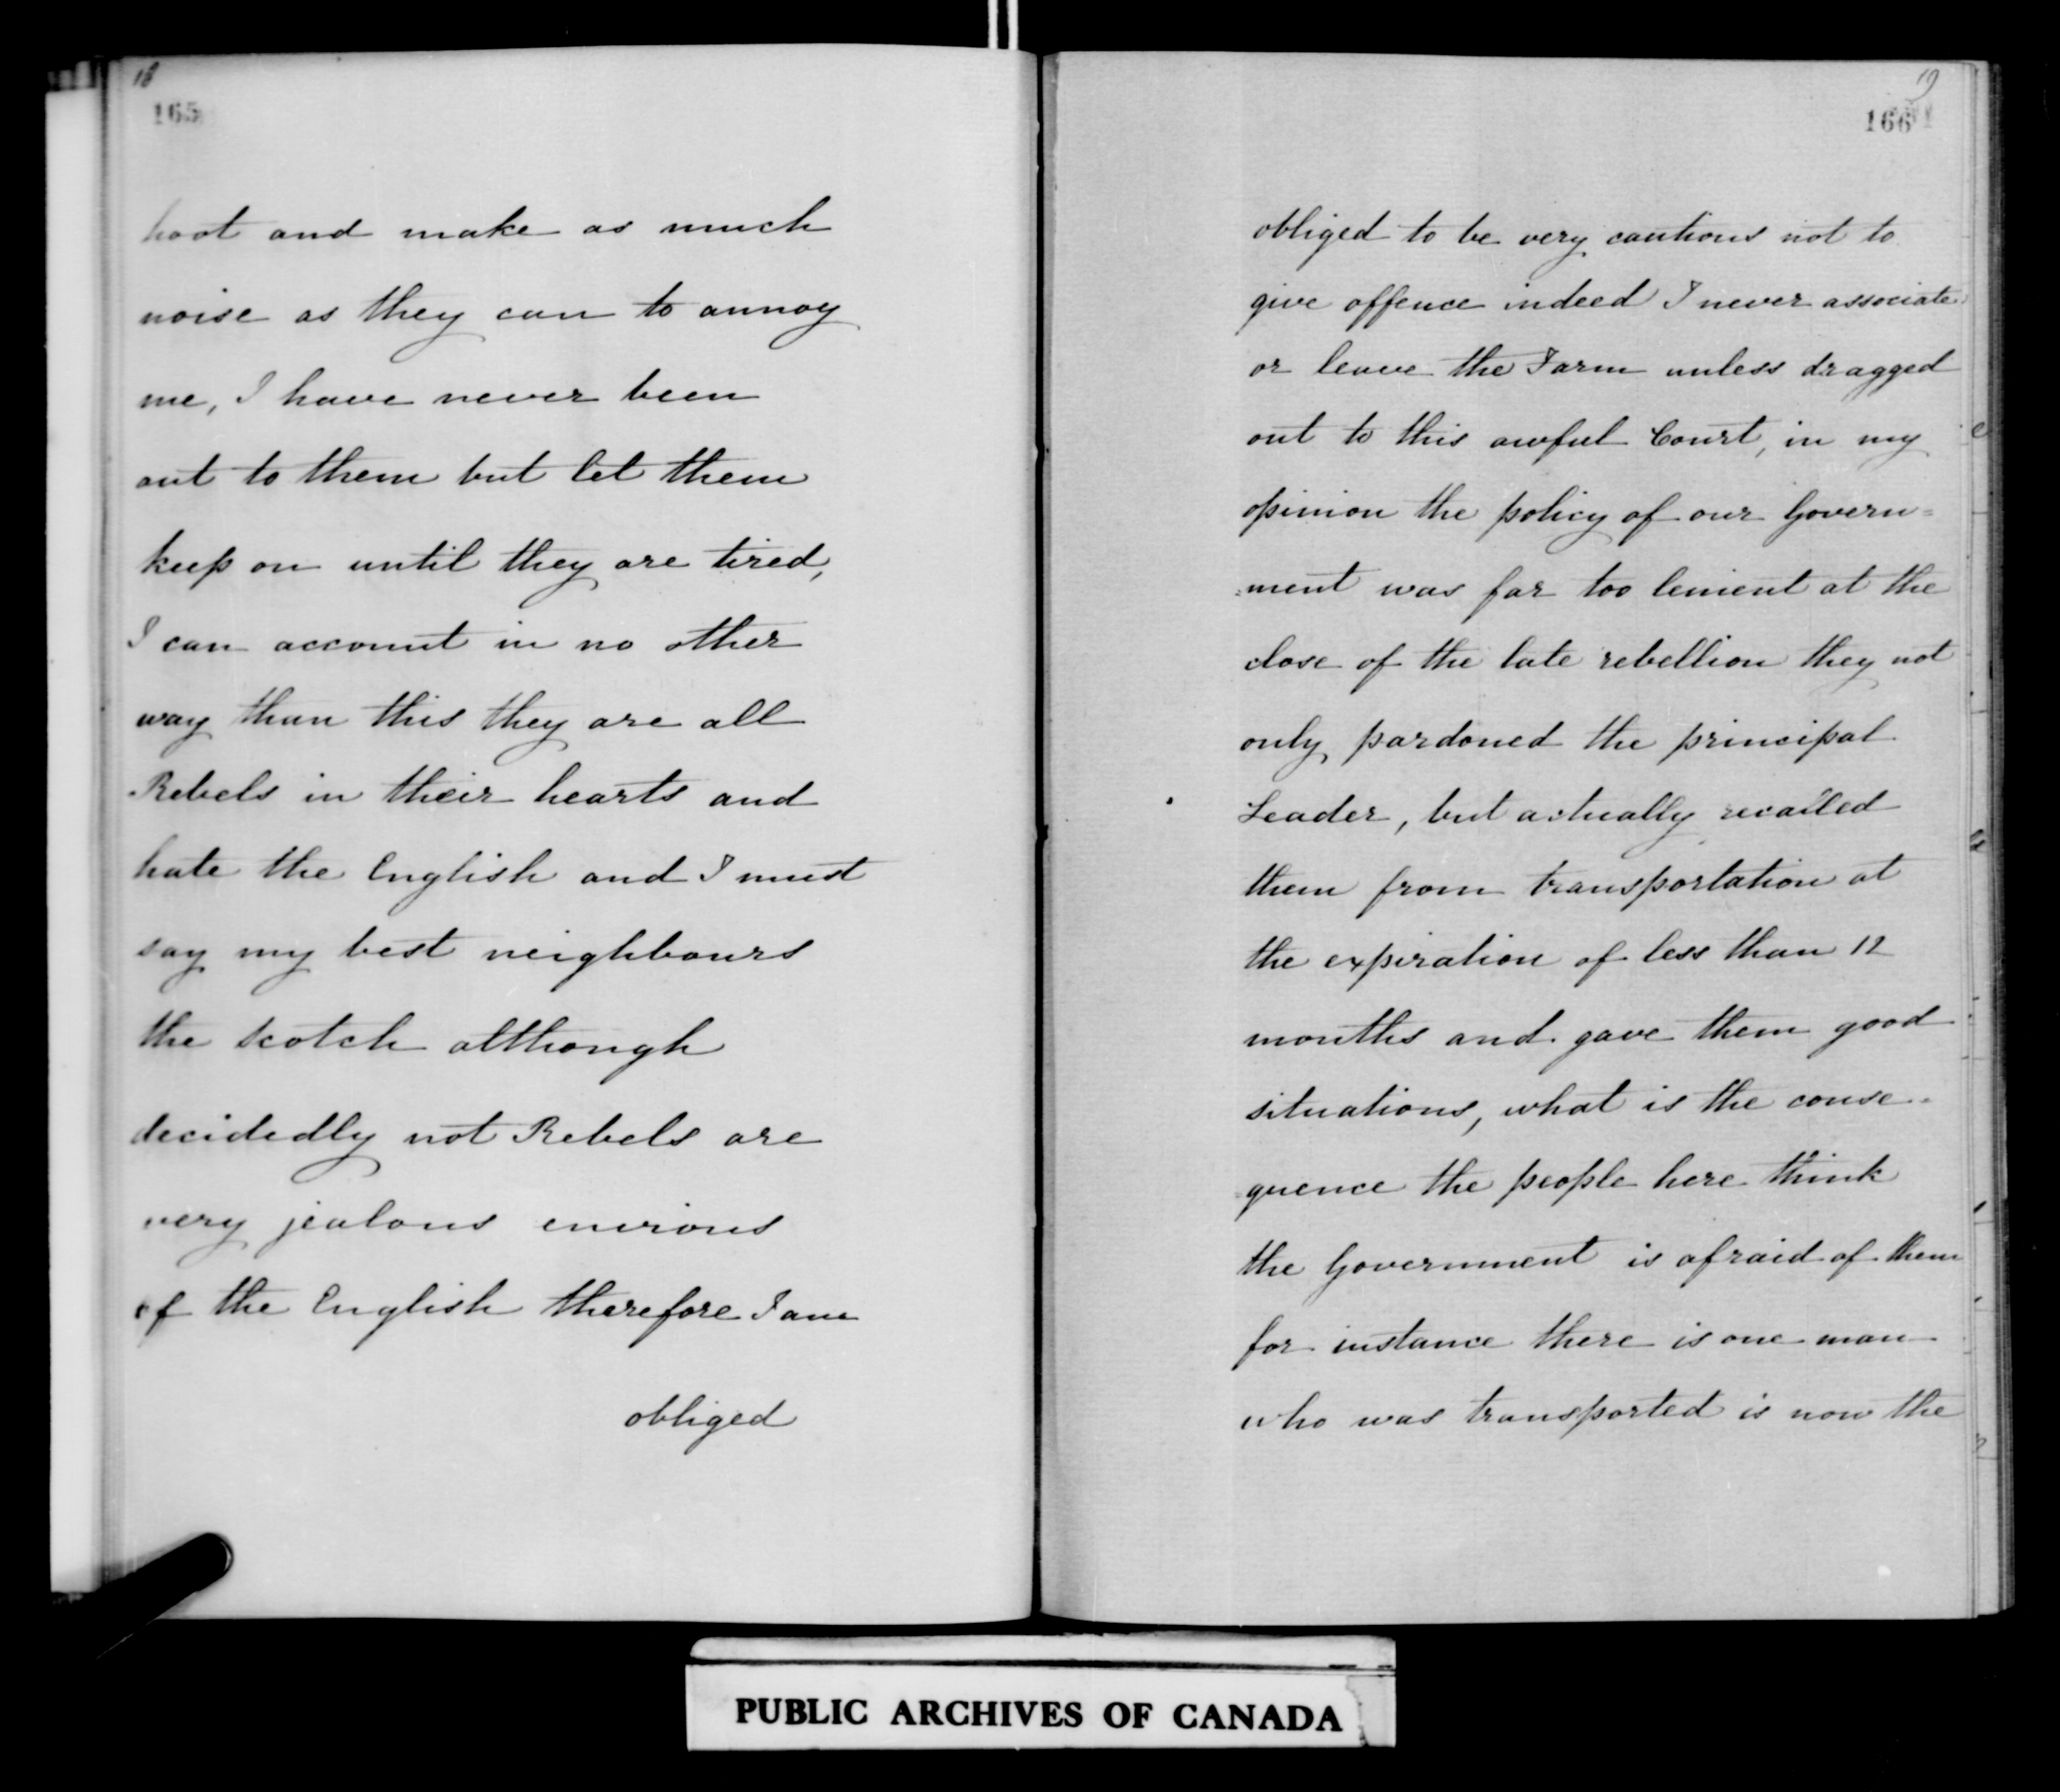 18
165
hoot and make as much
noise as they can to annoy
me, I have never been
out to them but let them
keep on until they are tired,
I can account in no other
way than this they are all
Rebels in their hearts and
hate the English and I must
say my best neighbours
the Scotch although
decidedly not Rebels are
very jealous envious
of the English therefore I am
obliged
19
166
obliged to be very cautious not to
give offence indeed I never associate
or leave the Farm unless dragged
out to this awful Court, in my
opinion the policy of our Govern=
=ment was far too lenient at the
close of the late rebellion they not
only pardoned the principal
Leader, but actually recalled
them from transportation at
the expiration of less than 12
months and gave them good
situations, what is the conse=
=quence the people here think
the Government is afraid of them
for instance there is one man
who was transported is now the
PUBLIC ARCHIVES OF CANADA